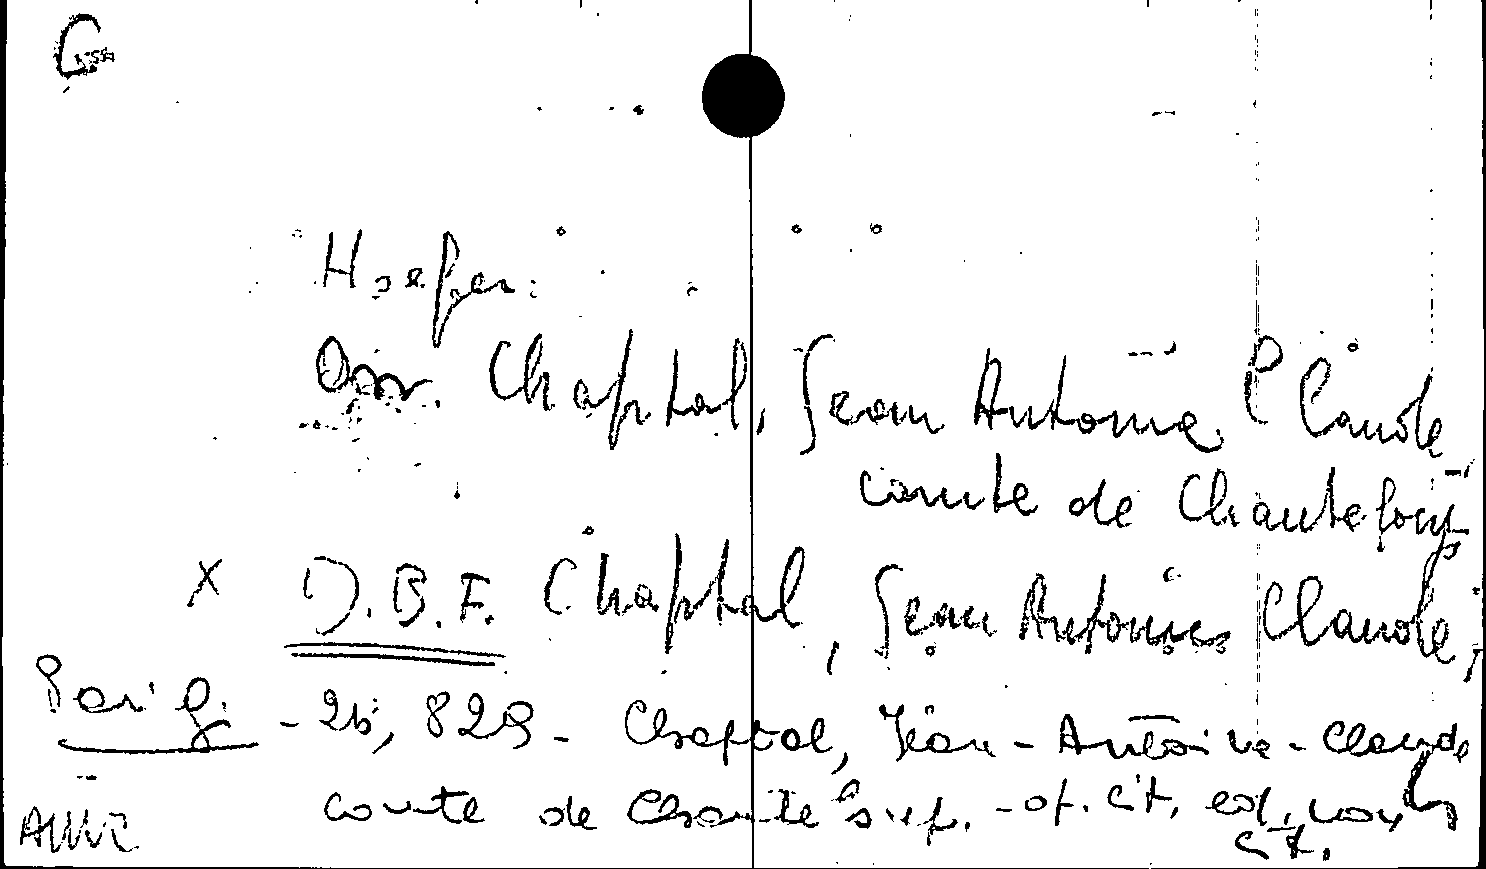 G
Hoefer:
Chaptal, Jean Antoine Claude
comte de Chanteloup
X D.B.F. Chaptal, Jean Antoine Claude,
Parigi - 2b, 829 - Chaptal, Jean-Antoine-Claude
comte de Chanteloup. - op. cit, ed, vox
cit.